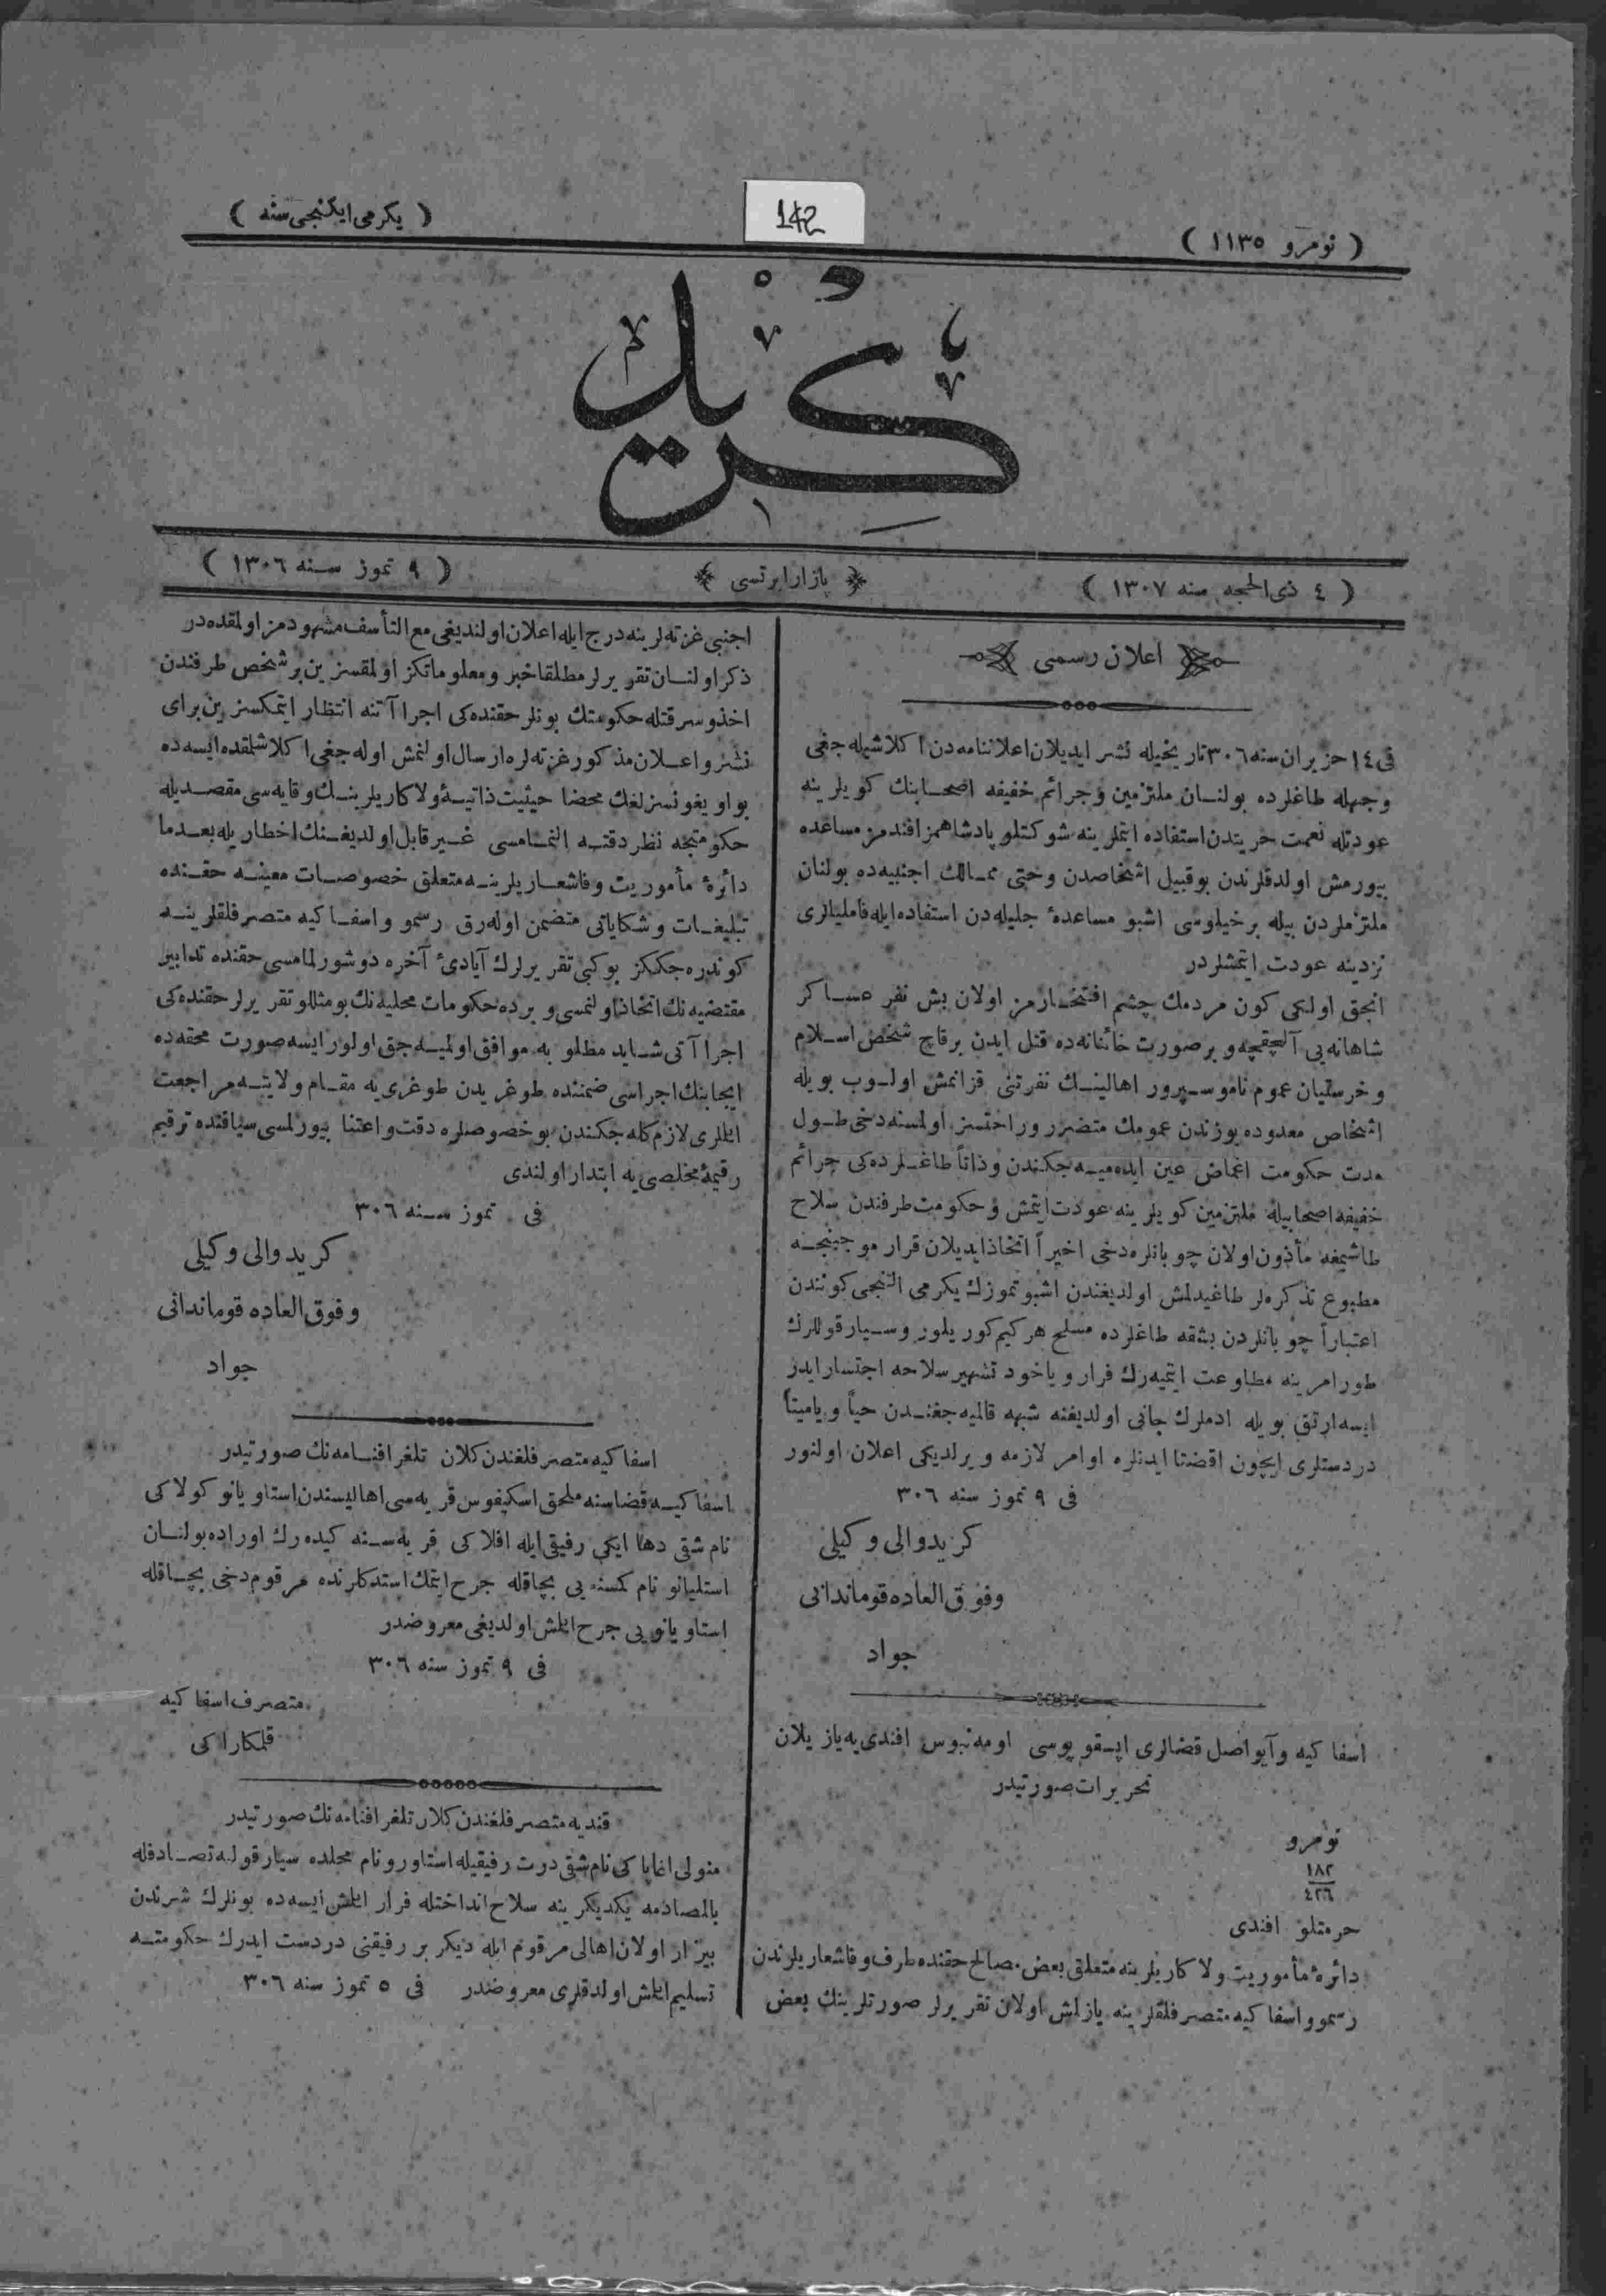 ( نومرو ١١٣٥ )
142
( يكرمى ايكنجى سنه )
كريد
( ٤ ذى الحجه سنه ١٣٠٧ )
پازار ايرتسى
( ٩ تموز سنه ١٣٠٦ )
اعلان رسمى
فى ١٤ حزيران سنه ٣٠٦ تاريخيله نشر ايديلان اعلاننامه دن اكلاشيله جغى
وجهله طاغلرده بولنان ملتزمين وجرائم خفيفه اصحابنك كويلرينه
عودتله نعمت حريتدن استفاده ايتملرينه شوكتلو پادشاهمز افندمز مساعده
بيورمش اولدقلرندن بوقبيل اشخاصدن وحتى ممالك اجنبيه ده بولنان
ملتزملردن بيله برخيلوسى اشبو مساعدهٔ جليله دن استفاده ايله فاميليالرى
نزدينه عودت ايتمشلردر
انجق اولكى كون مردمك چشم افتخارمز اولان بش نفر عساكر
شاهانه يى آلچقجه و برصورت خائنانه ده قتل ايدن برقاچ شخص اسلام
وخرستيان عموم ناموسپرور اهالينك نفرتنى قزانمش اولوب بويله
اشخاص معدوده يوزندن عمومك متضرر وراحتسز اولمسنه دخى طول
مدت حكومت اغماض عين ايده ميه جكندن وذاتاً طاغلرده كى جرائم
خفيفه اصحابيله ملتزمين كويلرينه عودت ايتمش وحكومت طرفندن سلاح
طاشيمغه مأذون اولان چوبانلره دخى اخيراً اتخاذ ايديلان قرار موجبنجه
مطبوع تذكره لر طاغيدلمش اولديغندن اشبو تموزك يكرمى التنجى كوندن
اعتباراً چوبانلردن بشقه طاغلرده مسلح هركيم كوريلور وسيار قوللرك
طور امرينه مطاوعت ايتميه رك فرار وياخود تشهير سلاحه اجتسار ايدر
ايسه ارتق بويله ادملرك جانى اولديغنه شبهه قالميه جغندن حياً وياميتاً
دردستلرى ايچون اقتضا ايدنلره اوامر لازمه ويرلديكى اعلان اولنور
فى ٩ تموز سنه ٣٠٦
كريد والى وكيلى
وفوق العاده قوماندانى
جواد
اسفاكيه وآيواصل قضالرى اپسقوپوسى افندى يه يازيلان
تحريرات صورتيدر
نومرو
١٨٢
٤٢٦
حرمتلو افندى
دائرهٔ مأموريت ولاكاريلرينه متعلق بعض مصالح حقنده طرف وفاشعاريلرندن
رسمو واسفاكيه متصرفلقلرينه يازلمش اولان تقريرلر صورتلرينك بعض
اجنبى غزته لرينه درج ايله اعلان اولنديغى مع التأسف مشهودمز اولمقده در
ذكر اولنان تقريرلر مطلقا خبر ومعلوماتكز اولمقسزين بر شخص طرفندن
اخذ وسرقتله حكومتك بونلر حقنده كى اجراآتنه انتظار ايتمكسزين براى
نشر واعلان مذكور غزته لره ارسال اولنمش اوله جغى اكلاشلمقده ايسه ده
بو اويغونسزلغك محضا حيثيت ذاتيهٔ ولاكاريلرينك وقايه سى مقصديله
حكومتجه نظر دقته النمامسى غير قابل اولديغنك اخطاريله بعدما
دائرهٔ مأموريت وفاشعاريلرينه متعلق خصوصات معينه حقنده
تبليغات وشكاياتى متضمن اوله رق رسمو واسفاكيه متصرفلقلرينه
كوندره جككز بوكبى تقريرلرك آيادىٔ آخره دوشورلمامسى حقنده تدابير
مقتضيه نك اتخاذ اولنمسى و برده حكومات محليه نك بومثللو تقريرلر حقنده كى
اجراآتى شايد مطلوبه موافق اولميه جق اولور ايسه صورت محقه ده
ايجابنك اجراسى ضمننده طوغريدن طوغرى يه مقام ولايته مراجعت
ايتملرى لازم كله جكندن بوخصوصلره دقت واعتنا بيورلمسى سياقنده ترقيم
رقيمهٔ مخلصى يه ابتدار اولندى
فى تموز سنه ٣٠٦
كريد والى وكيلى
وفوق العاده قوماندانى
جواد
اسفاكيه متصرفلغندن كلان تلغرافنامه نك صورتيدر
اسفاكيه قضاسنه ملحق اسكيفوس قريه سى اهاليسندن استاويانو كولاكى
نام شقى دها ايكى رفيقى ايله افلاكى قريه سنه كيده رك اوراده بولنان
استليانو نام كمسنه يى بچاقله جرح ايتمك استدكلرنده مرقوم دخى بچاقله
استاويانويى جرح ايتمش اولديغى معروضدر
فى ٩ تموز سنه ٣٠٦
متصرف اسفاكيه
قنديه متصرفلغندن كلان تلغرافنامه نك صورتيدر
منولى نام شقى درت رفيقيله استاورو نام محلده سيار قوله تصادفله
بالمصادمه يكديكرينه سلاح انداختله فرار ايتمش ايسه ده بونلرك شرندن
بيزار اولان اهالى مرقوم ايله ديكر بر رفيقنى دردست ايدرك حكومته
تسليم ايتمش اولدقلرى معروضدر فى ٥ تموز سنه ٣٠٦